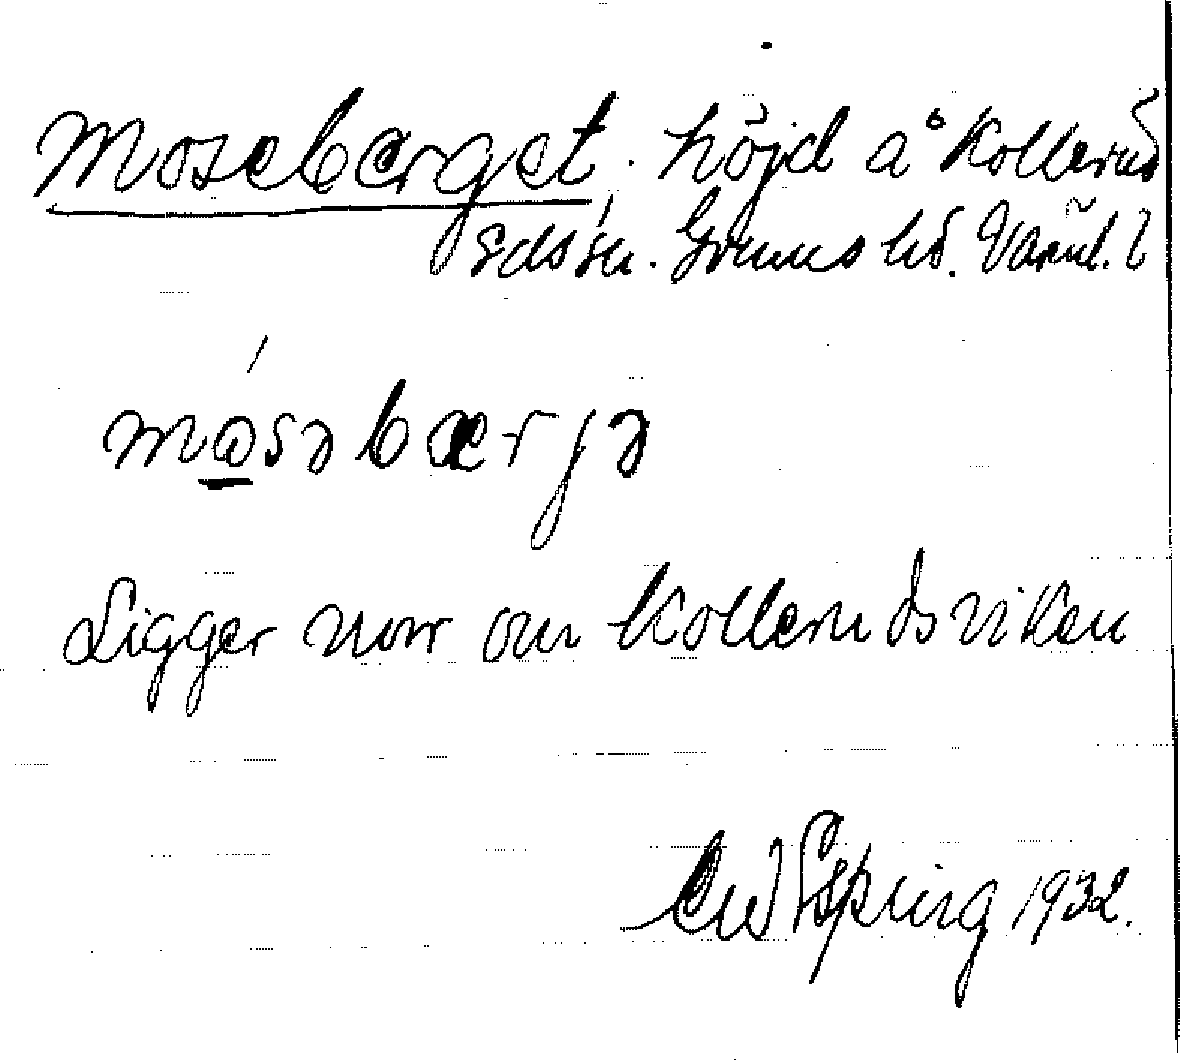 Moseberget. höjd å Kollerud
Eds sn. Grums hd. Värml. l
måsəbærjə
Ligger norr om Kollerudsviken
1932.